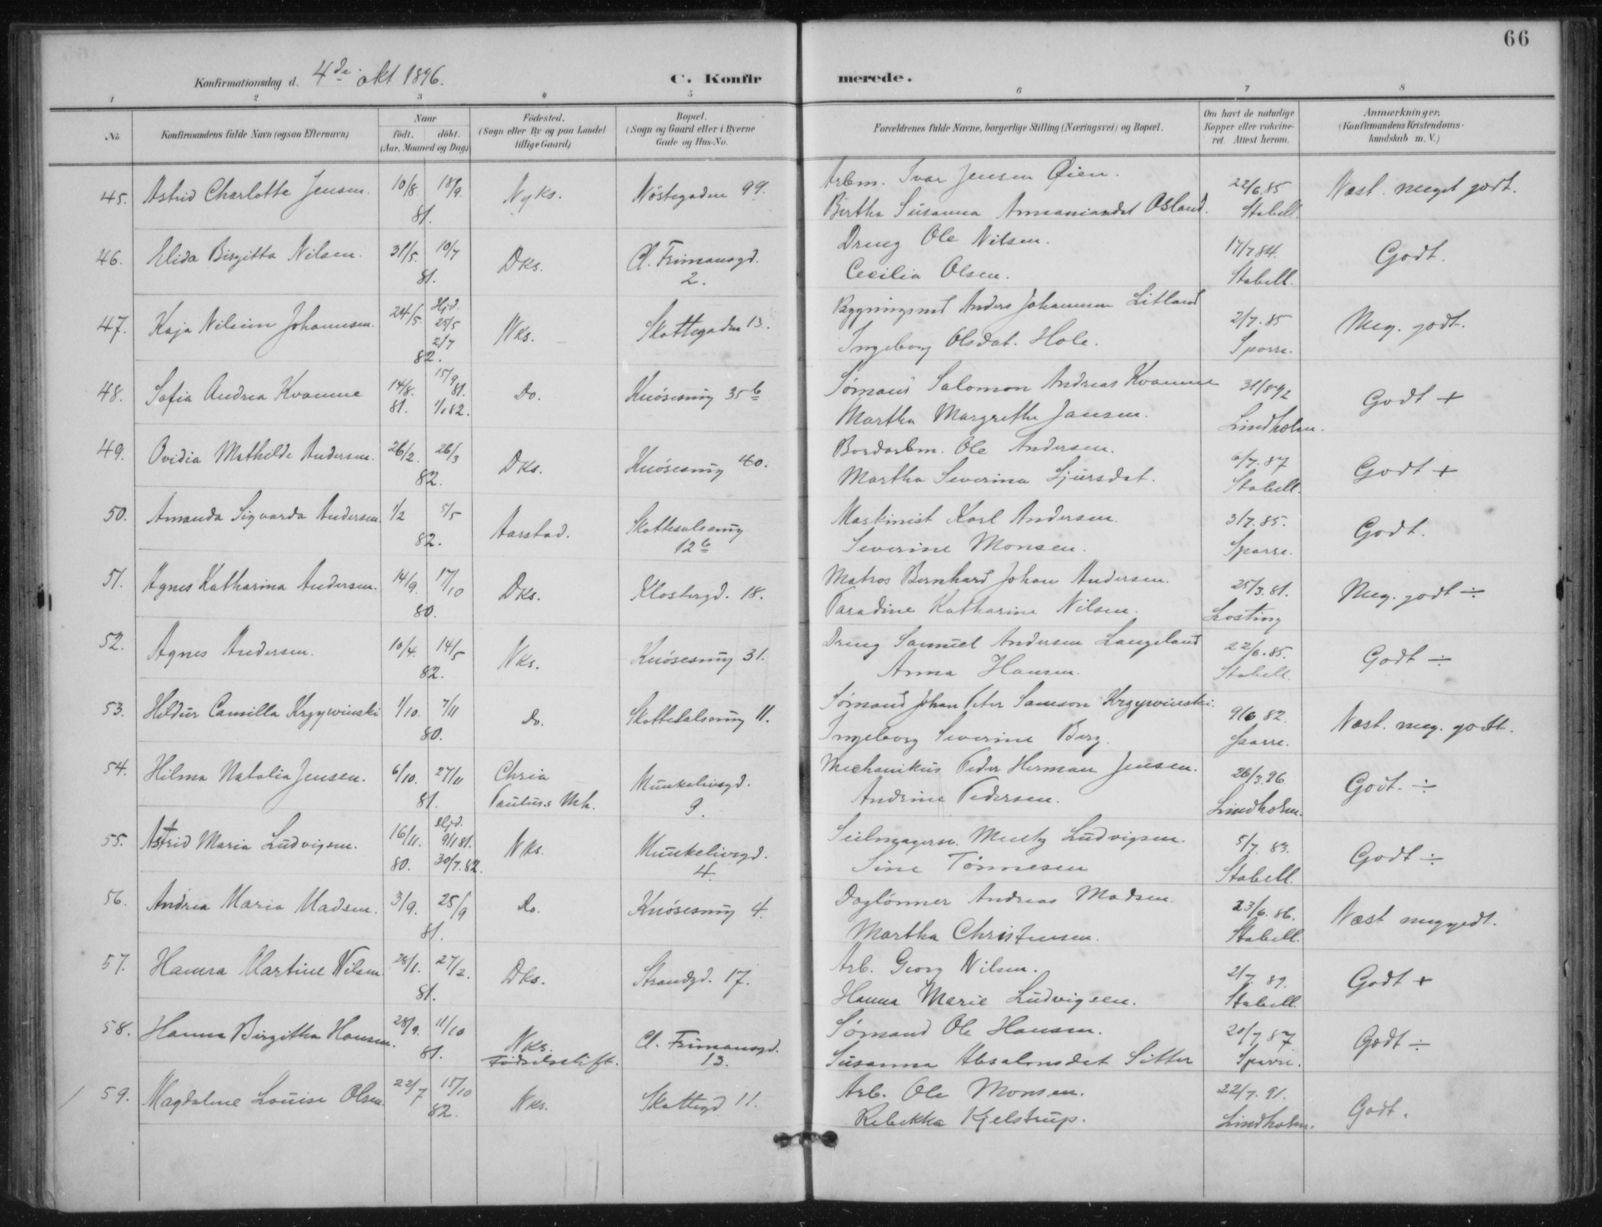 66
Konfirmationsdag d. 4de okt 1896.
C. Konfirmerede.
1 2 3 4 5 6 7 8
No. Konfirmandens fulde Navn (ogsaa Efternavn) Naar født. døbt. (Aar, Maaned og Dag) Fødested. (Sogn eller By og paa Landet tillige Gaard) Bopæl. (Sogn og Gaard eller i Byerne Gade og Hus-No. Forældrenes fulde Navne, borgerlige Stilling (Næringsvei) og Bopæl. Om havt de naturlige Kopper eller vaccineret. Attest herom. Anmerkninger. (Konfirmandens Kristendomskundskab m. V.)
45. Astrid Charlotte Jensen. 10/8 18/9 81. Nyks. Nøstegaden 99. Arbm. Ivar Jensen Øien. 22/6.85 Næst. meget godt.
Bertha Susanna Ammaniasdat Osland. Stabell.
46. Elida Birgitta Nilsen. 31/5 10/7 81. Dks. Cl. Frimansgd. 2. Dreng Ole Nilsen. 17/7 84. Godt.
Cecilia Olsen. Stabell.
47. Kaja Nilsine Johannesen. 24/5 Hjd. 25/5 2/7 82. Nks. Skottegaden 13. Bygningssnd Anders Johannesen Litland 2/7.85 Meg. godt.
Ingeborg Olsdat. Hole. Sparre.
48. Sofia Andrea Kvamme 14/8. 81. 15/9 81. 1/1 82. Do. Knøsesmug 35 b Sømand Salomon Andreas Kvamme Godt +
Martha Margrethe Jansen. Lindholm.
49. Ovidia Mathilde Andersen. 26/2. 26/3 82. Dks. Knøsesmug 40. Bordarbm. Ole Andersen. Godt +
Martha Severina Sjursdat. Stabell.
50. Amanda Sigvarda Andersen. 1/2 5/5 82. Aarstad. Skottesalsmug 12 b Maskinist Karl Andersen. 3/7.85. Godt.
Severine Monsen. Sparre.
51. Agnes Katharina Andersen. 14/9. 17/10 80. Dks. Klostergd. 18. Matros Bernhard Johan Andersen. 25/3.81. Meg. godt ÷
Paradine Katharine Nilsen. Losting
52. Agnes Andersen. 10/4. 14/5 82. Nks. Knøsesmug 31. Dreng Samuel Andersen Langeland 22/6.85. Godt ÷
Anna Hansen. Stabell.
53. Hildur Camilla Krzywinski 1/10. 7/11 80. Do. Skottedalsmug 11. Sømand Johan Peter Samson Krzywinski. 9/6 82. Næst. meg. godt.
Ingeborg Severine Berg. Sparre.
54. Hilma Natalia Jensen. 6/10. 27/11 81. Chria Paulus's Mh. Munkelivsgd. 9. Mechanikus Peder Herman Jensen. 26/3.96 Godt. ÷
Andrine Pedersen. Lindholm.
55. Astrid Maria Ludvigsen. 16/11. 80. Hjd. 9/1 81. 30/7.82. Nks. Munkelivsgd. 4. Seilmagersv. Meutz Ludvigsen. 5/7. 83. Godt ÷
Sine Tønnesen Stabell.
56. Andrea Maria Madsen. 3/9. 25/9 81. Do. Knøsesmug 4. Dagl��nner Andreas Madsen. 23/6.86. Næst meg godt.
Martha Christensen. Stabell.
57. Hanna Martine Nilsen 28/1. 27/2. 81. Dks. Strandgd. 17. Arb. Georg Nilsen. Godt +
Hanna Marie Ludvigsen. Stabell.
58. Hanna Birgitha Hansen. 28/9. 11/10 81. Nks. Fødselsstift. Cl. Frimansgd. 13. Sømand Ole Hansen. 20/7 87 Godt ÷
Susanna Absalonsdat Sitter Sparre.
59. Magdalene Louise Olsen. 22/7 15/10 82. Nks. Skottegd 11. Arb. Ole Monsen. 22/7. 91. Godt.
Rebekka Kjelstrup. Lindholm.